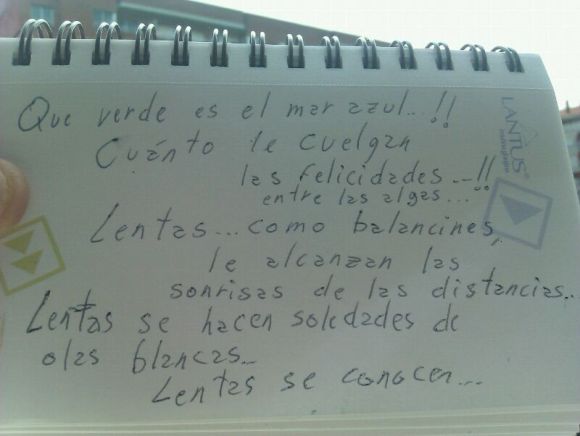 Que verde es el mar azul...!!
Cuánto le cuelgan
las felicidades...!!
entre las algas...
Lentas... como balancines,
le alcanzan las
sonrisas de las distancias..
Lentas se hacen soledades de
olas blancas...
Lentas se conocen...
LANTUS®